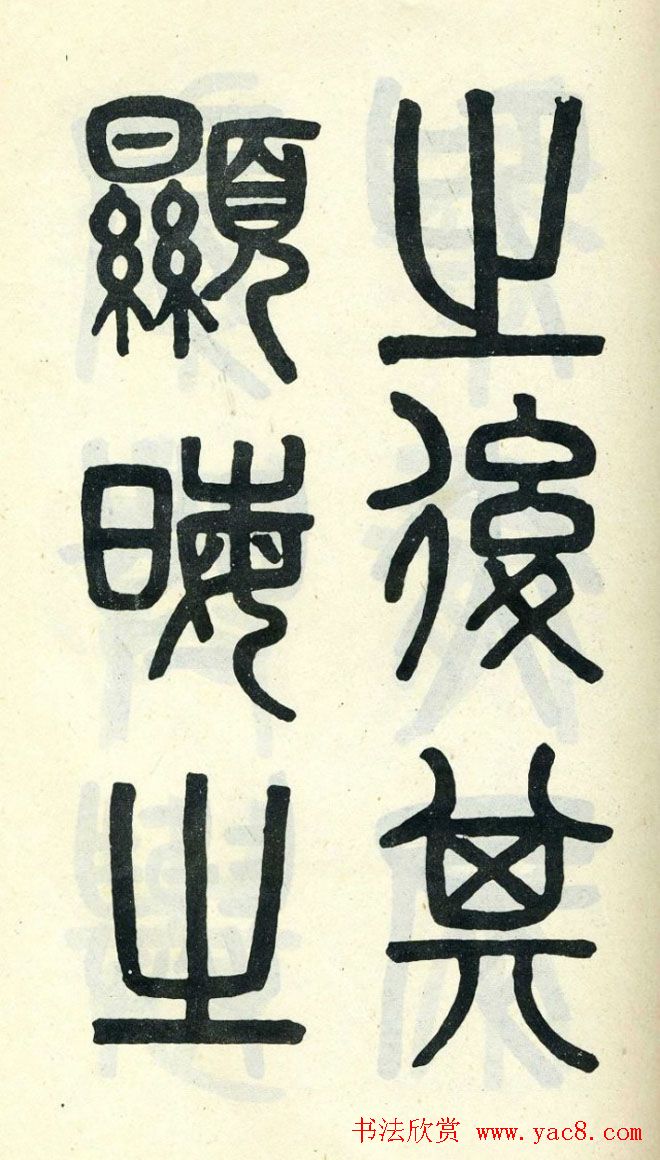 之後其
顯晦之
书法欣赏 www.yac8.com